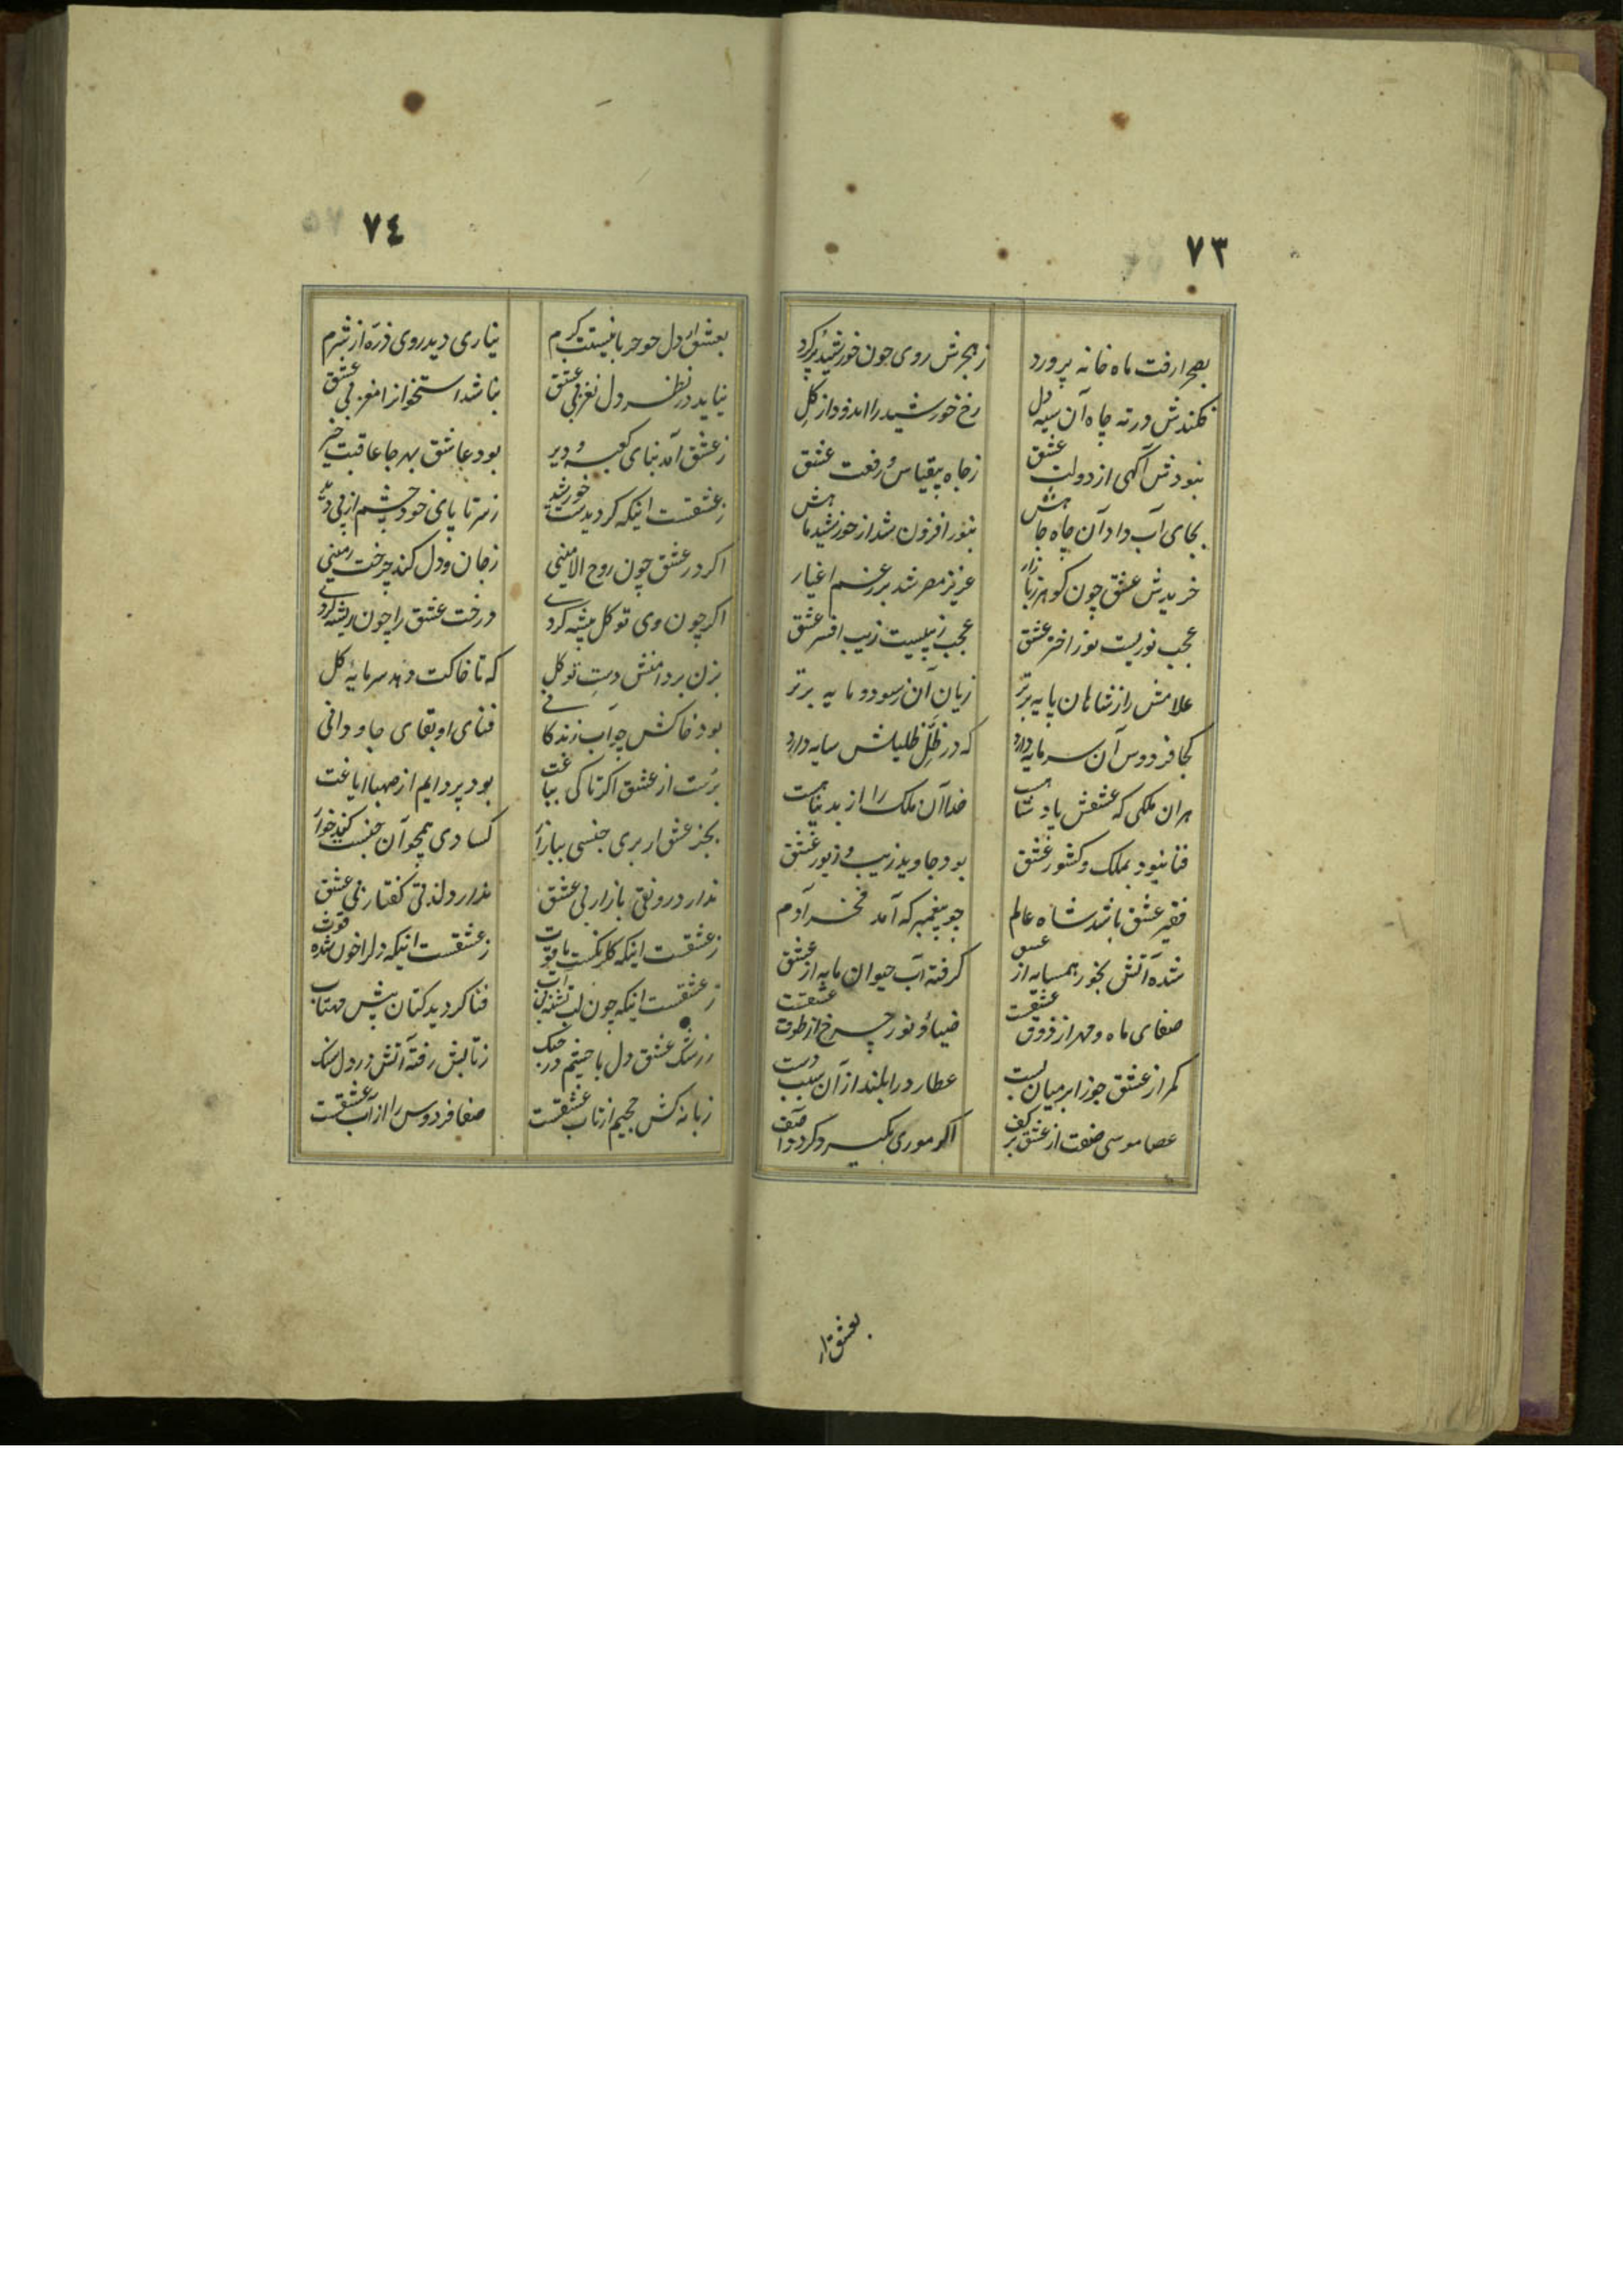 ٧٣
بصحرا رفت ماه خانه پرورد زهجرش روی چون خورشید پر کرد
فکندش در ته چاه آن سیه دل رخ خورشید را اندود از گل
نبودش آگهی از دولت عشق زجاه بیقیاس و رفعت عشق
بجای آب داد آن چاه جاهش بنور افزون شد از خورشید ماهش
خریدش عشق چون گوهر زبازار عزیز مصر شد بر رغم اغیار
عجب نوریست نور اختر عشق عجب زیبیست زیب افسر عشق
غلامش را زشاهان پایه برتر زیان آن زسود و مایه برتر
کجا فردوس آن سرمایه دارد که در ظلّ ظلیلش سایه دارد
هران ملکی که عشقش پادشاهست خدا آن ملک را از بد پناهست
فنا نبود بملک و کشور عشق بود جاوید زیب و زیور عشق
فقیر عشق باشد شاه عالم چو پیغمبر که آمد فخر آدم
شده آتش بخور همسایه از عشق گرفته آب حیوان مایه از عشق
صفای ماه و مهر از ذوق عشقست ضیاء و نور چرخ از طوق عشقست
کمر از عشق جوزا بر میان بست عطارد را بلند از آن سبب دست
عصا موسی صفت از عشق بر کف اگر موری بگیرد گردد آصف
بعشق ار
٧٤
بعشق ار دل چو حربا نیستت گرم نیاری دید روی ذره از شرم
نیاید در نظر دل نغز بی عشق نباشد استخوانرا مغز بی عشق
زعشق آمد بنای کعبه و دیر بود عاشق بهر جا عاقبت خیر
زعشقست اینکه گردیدست خورشید زسر تا پای خود چشم از پی دید
اگر در عشق چون روح الامینی زجان و دل کند چرخت زمینی
اگر چون وی توکل پیشه کردی درخت عشق را چون ریشه کردی
بزن بر دامنش دست توکل که تا خاکت دهد سرمایه گل
بود خاکش چو آب زندگانی فنای او بقای جاودانی
برست از عشق اگر تاکی بباغت بود پر دایم از صهبا ایاغت
بجز عشق ار بری جنسی ببازار کسادی همچو آن جنست کند خوار
ندارد رونقی بازار بی عشق ندارد لذتی گفتار بی عشق
زعشقست اینکه گلرنگست یاقوت زعشقست اینکه دلرا خون شده قوت
زعشقست اینکه چون لب تشنه بی آب فنا گردید کتان پیش مهتاب
زرشک عشق دل با خیتم در جنگ زتابش رفته آتش در دل سنگ
زبانه کش جحیم از تاب عشقست صفا فردوس را از آب عشقست